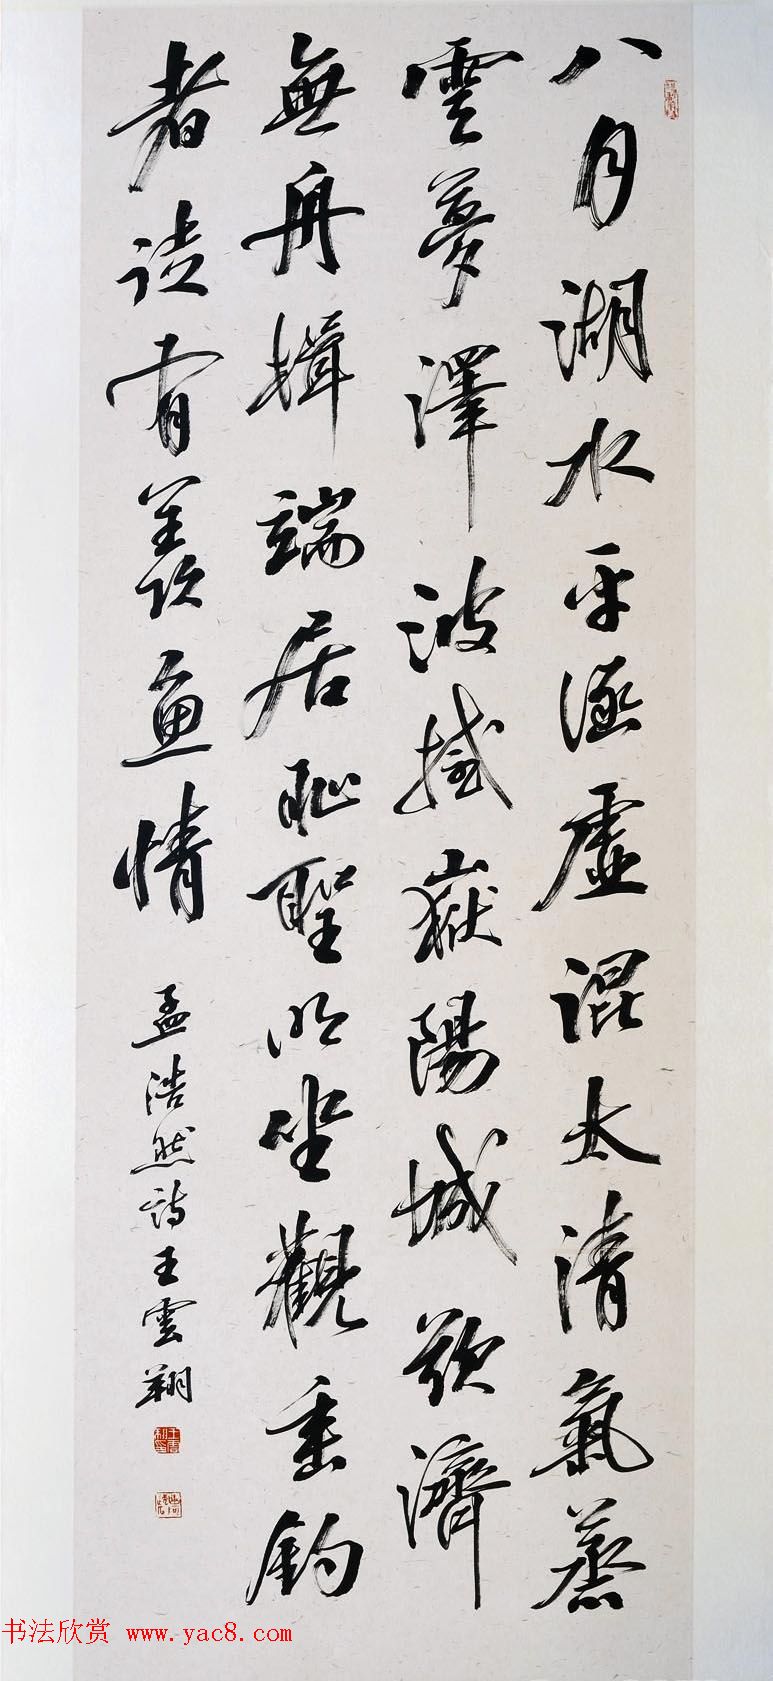 八月湖水平涵虛混太清氣蒸
雲夢澤波撼嶽陽城欲濟
無舟楫端居耻聖明坐觀垂釣
者徒有羨魚情
孟浩然詩王雲翔
书法欣赏 www.yac8.com